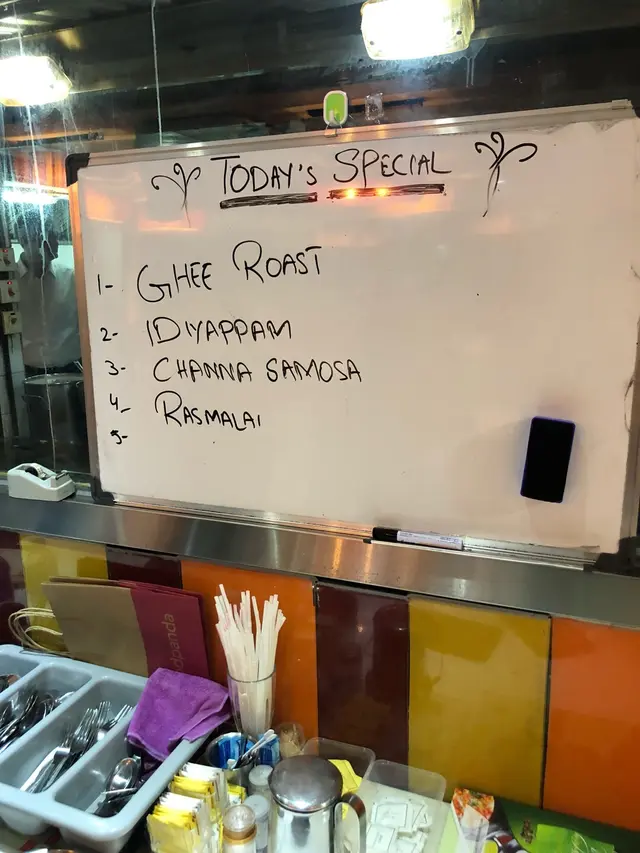 TODAY'S SPECIAL
1- GHEE ROAST
2- IDIYAPPAM
3- CHANNA SAMOSA
4- RASMALAI
5-
dpanda